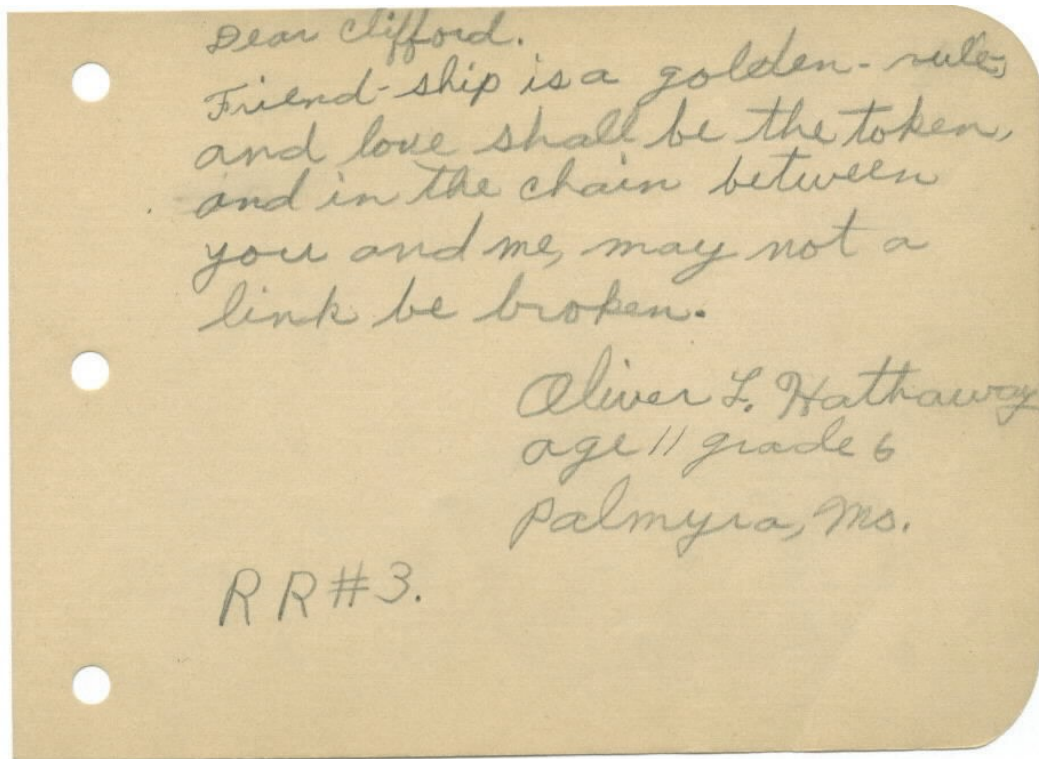 Dear Clifford.
Friend-ship is a golden-rule,
and love shall be the token,
and in the chain between
you and me, may not a
link be broken.
Oliver L. Hathaway
age 11 grade 6
Palmyra, Mo.
RR#3.